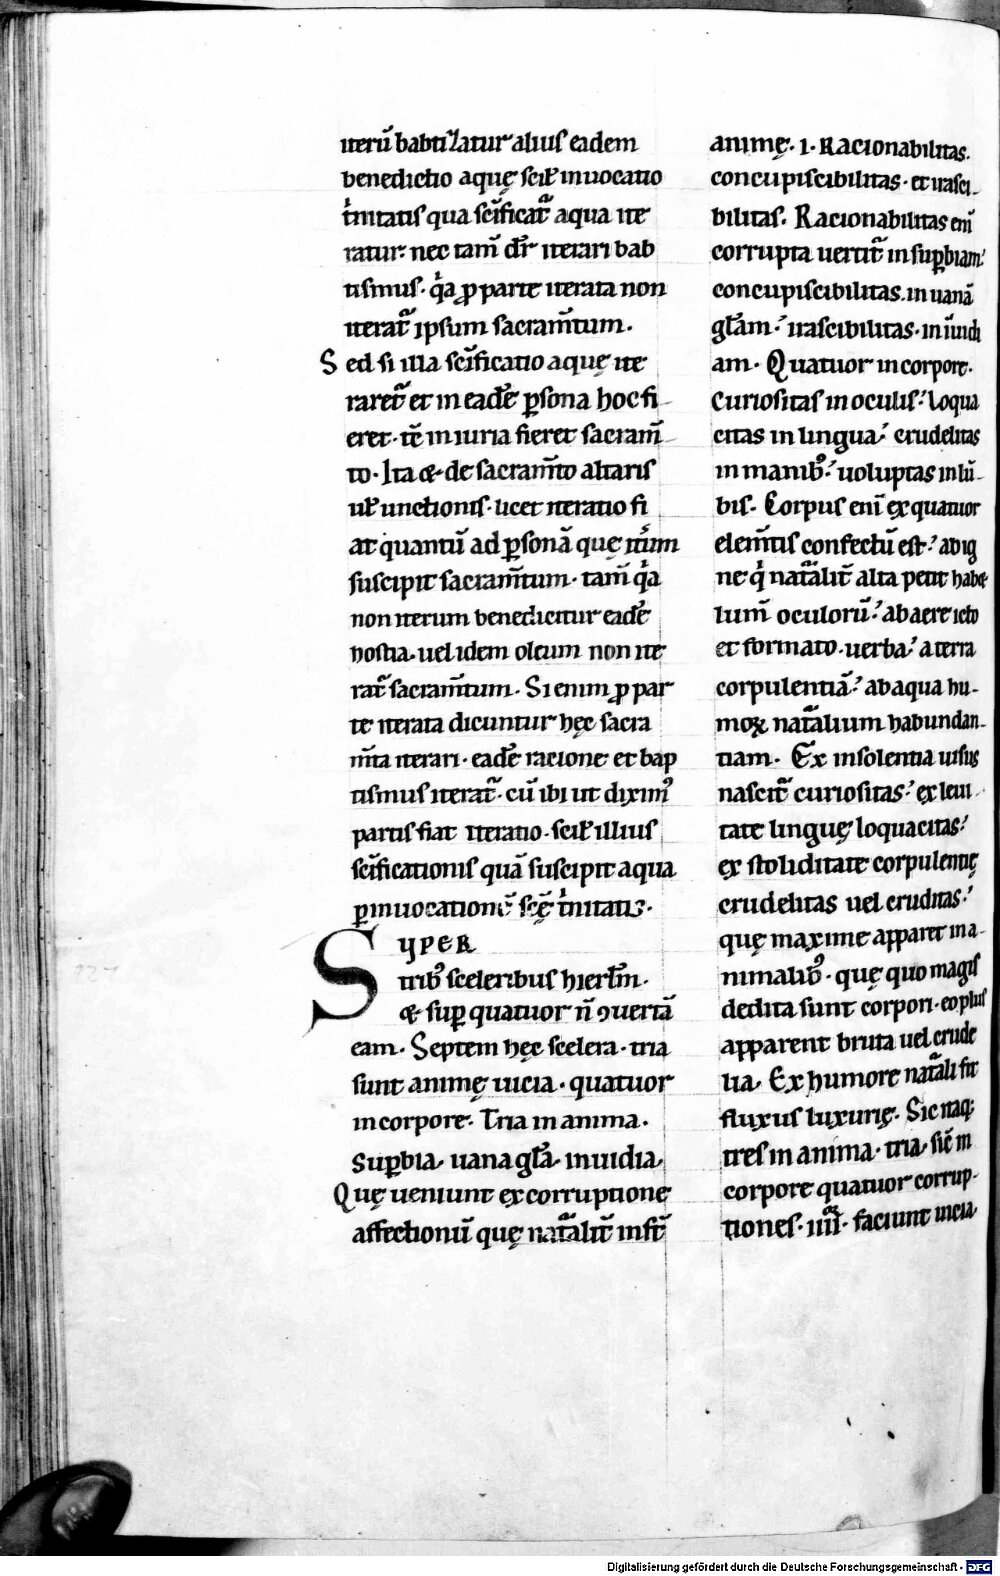 iterū babtizatur alius eadem
benedictio aquę scił inuocatio
tͥnitatis qua sc̄ificat᷑ aqua ite
ratur· nec tam̄ dr̄ iterari bab
tismus· qͥa ꝓ parte iterata non
iterat᷑ ipsum sacram̄tum.
Sed si illa sc̄ificatio aquę ite
raret᷑ et in eadē ꝑsona hoc fi
eret· tc̄ iniuria fieret sacram̄
to· Ita & de sacram̄to altaris
uł unctionis· licet iteratio fi
at quantū ad ꝑsonā quę itͥum
suscipit sacram̄tum· tam̄ qͥa
non iterum benedicitur eadē
hostia· uel idem oleum non ite
rat᷑ sacram̄tum· Si enim ꝓ par
te iterata dicuntur hęc sacra
m̄ta iterari· eadē racione et bap
tismus iterat᷑· cū ibi ut diximꝰ
partis fiat iteratio· scił illius
sc̄ificationis quā suscipit aqua
ꝑ inuocationē scę̄ tͥnitatis·
SUPER
tribꝰ sceleribus hierłm·
& suꝑ quatuor n̄ ꝯuertā
eam· Septem hęc scelera· tria
sunt animę uicia· quatuor
in corpore· Tria in anima·
Suꝑbia, uana gła, inuidia,
Quę ueniunt ex corruptione
affectionū quę nat᷑alit᷑ inst̄
animę· i· Racionabilitas.
concupiscibilitas· et irasci
bilitas. Racionabilitas eni͞
corrupta uertit᷑ in suꝑbiam·
concupiscibilitas· in uanā
głam· irascibilitas· in īuidi
am· Quatuor in corpore·
Curiositas in oculis· loqua
citas in lingua· crudelitas
in manibꝰ· uoluptas in lū
bis. Corpus eni͞ ex quatuor
elem̄tis confectū est· ab ig
ne qͥ nat᷑alit᷑ alta petit habe
lum̄ oculorū· ab aere icto
et formato· uerba· a terra
corpulentiā· ab aqua hu-
morē nat᷑alium habundan-
tiam· Ex insolentia uisus
nascit᷑ curiositas· ex leui
tate linguę loquacitas·
ex stoliditate corpulentię
crudelitas uel cruditas·
quę maxime apparet in a-
nimalibꝰ· quę quo magis
dedita sunt corpori· eo plus
apparent bruta uel crude
lia, Ex humore nat᷑ali fit
fluxus luxurię· Sic itaq;
tres in anima· tria, sic̄ in
corpore quatuor corrup-
tiones· iiii· faciunt uicia·
Digitalisierung gefördert durch die Deutsche Forschungsgemeinschaft - DFG